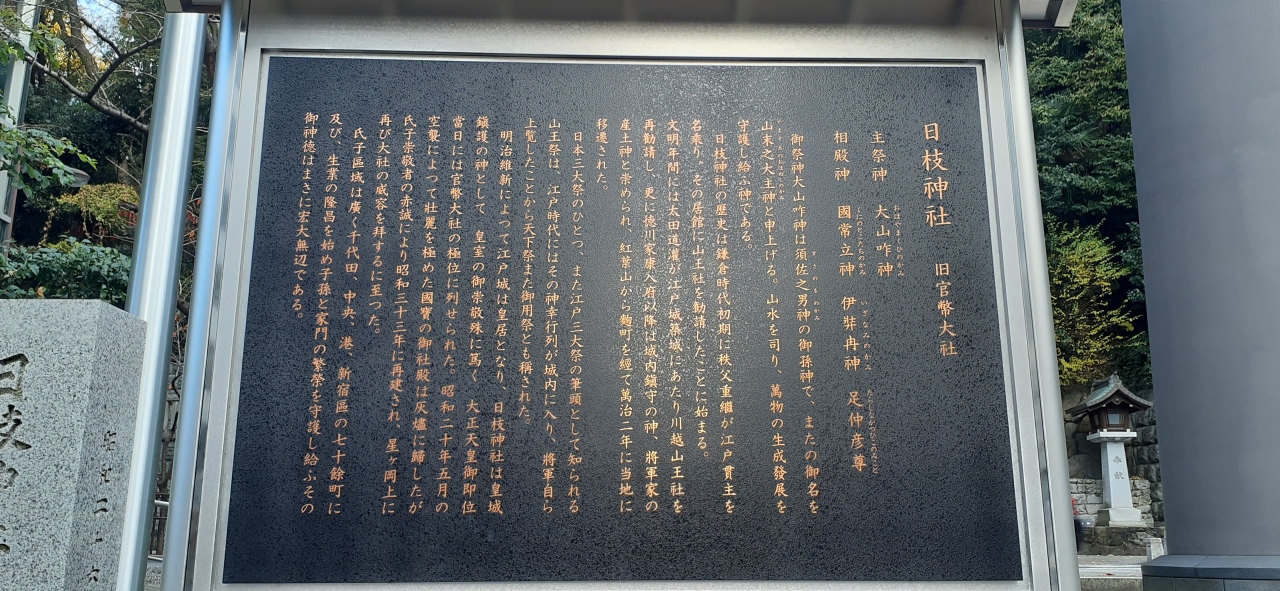 日枝神社　旧官幣大社
主祭神　大山咋神
おほやまくひのかみ
相殿神　國常立神　伊弉冉神　足仲彦尊
くにのとこたちのかみ　いざなみのかみ　たらしなかつひこのみこと
御祭神大山咋神は須佐之男神の御孫神で、またの御名を
山末之大主神と申上げる。山水を司り、萬物の生成發展を
守護し給ふ神である。
日枝神社の歴史は鎌倉時代初期に秩父重継が江戸貫主を
名乗り、その居館に山王社を勧請したことに始まる。
文明年間には太田道灌が江戸城築城にあたり川越山王社を
再勧請し、更に徳川家康入府以降は城内鎮守の神、將軍家の
産土神と崇められ、紅葉山から麹町を經て萬治二年に当地に
移遷された。
日本三大祭のひとつ、また江戸三大祭の筆頭として知られる
山王祭は、江戸時代にはその神幸行列が城内に入り、將軍自ら
上覧したことから天下祭また御用祭とも稱された。
明治維新によって江戸城は皇居となり、日枝神社は皇城
鎮護の神として　皇室の御崇敬殊に篤く　大正天皇御即位
當日には官幣大社の極位に列せられた。昭和二十年五月の
空襲によつて壮麗を極めた國寶の御社殿は灰燼に歸したが
氏子崇敬者の赤誠により昭和三十三年に再建され、星ヶ岡上に
再び大社の威容を拝するに至つた。
氏子區域は廣く千代田、中央、港、新宿區の七十餘町に
及び、生業の隆昌を始め子孫と家門の繁榮を守護し給ふその
御神徳はまさに宏大無辺である。
日枝
奉献